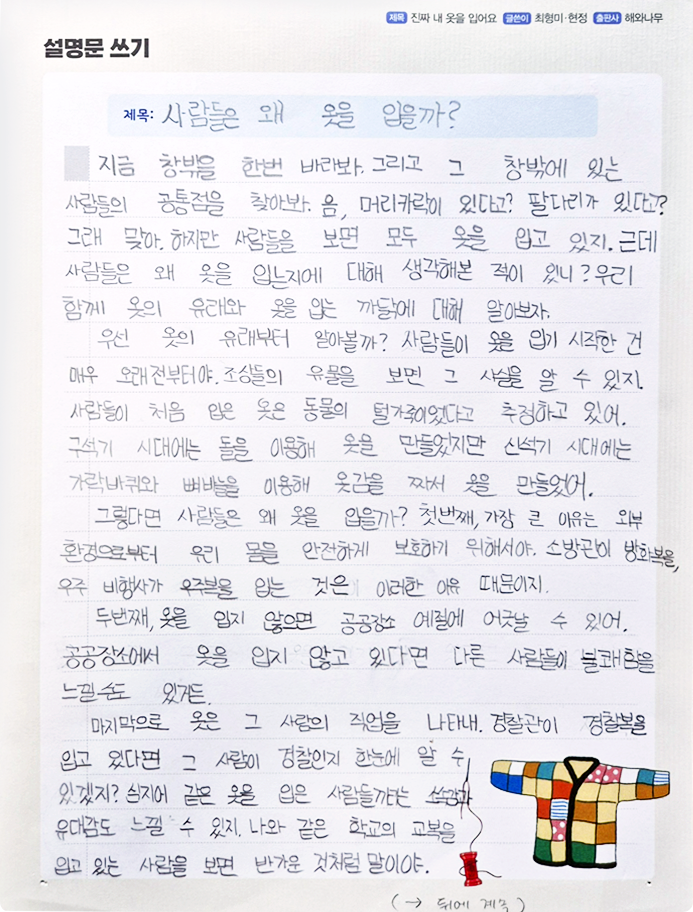 제목 진짜 내 옷을 입어요 글쓴이 최형미·현정 출판사 해와나무
설명문 쓰기
제목: 사람들은 왜 옷을 입을까?
지금 창밖을 한번 바라봐. 그리고 그 창밖에 있는
사람들의 공통점을 찾아봐. 음, 머리카락이 있다고? 팔다리가 있다고?
그래 맞아. 하지만 사람들을 보면 모두 옷을 입고 있지. 근데
사람들은 왜 옷을 입는지에 대해 생각해본 적이 있니? 우리
함께 옷의 유래와 옷을 입는 까닭에 대해 알아보자.
우선 옷의 유래부터 알아볼까? 사람들이 옷을 입기 시작한 건
매우 오래전부터야. 조상들의 유물을 보면 그 사실을 알 수 있지.
사람들이 처음 입은 옷은 동물의 털가죽이었다고 추정하고 있어.
구석기 시대에는 돌을 이용해 옷을 만들었지만 신석기 시대에는
가락바퀴와 뼈바늘을 이용해 옷감을 짜서 옷을 만들었어.
그렇다면 사람들은 왜 옷을 입을까? 첫번째, 가장 큰 이유는 외부
환경으로부터 우리 몸을 안전하게 보호하기 위해서야. 소방관이 방화복을,
우주 비행사가 우주복을 입는 것은 이러한 이유 때문이지.
두번째, 옷을 입지 않으면 공공장소 예절에 어긋날 수 있어.
공공장소에서 옷을 입지 않고 있다면 다른 사람들이 불쾌함을
느낄수도 있거든.
마지막으로 옷은 그 사람의 직업을 나타내. 경찰관이 경찰복을
입고 있다면 그 사람이 경찰인지 한눈에 알 수
있겠지? 심지어 같은 옷을 입은 사람들끼리는 소속감과
유대감도 느낄 수 있지. 나와 같은 학교의 교복을
입고 있는 사람을 보면 반가운 것처럼 말이야.
(→ 뒤에 계속)